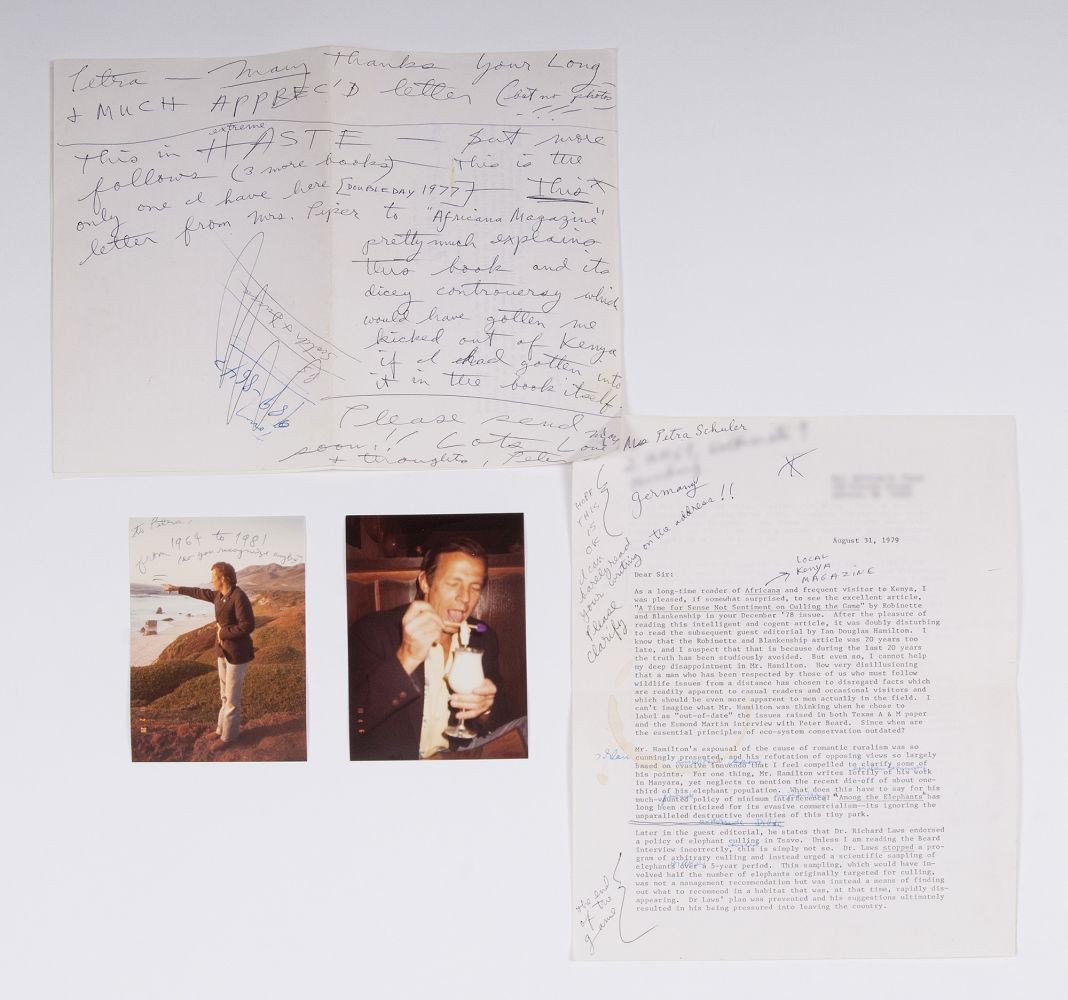 Petra — Many Thanks Your Long
& MUCH APPREC'D letter (but no photos
extreme
This in HASTE — but more
follows (3 more books) — This is the
only one I have here [DOUBLEDAY 1977] — This*
letter from Mrs. Piper to "Africana Magazine"
pretty much explains
this book and its
dicey controversy which
would have gotten me
kicked out of Kenya
if I had gotten into
it in the book itself.
Please send
soon!! Lots Love
& thoughts, Peter
to Petra,
from 1964 to 1981
(do you recognize anybody?
Miss Petra Schuler
Germany
HOPE
THIS
IS
OK
I can
barely read
your writing on the address!!
Please
clarify
August 31, 1979
LOCAL
Kenya
MAGAZINE
Dear Sir:
As a long-time reader of Africana and frequent visitor to Kenya, I
was pleased, if somewhat surprised, to see the excellent article,
"A Time for Sense Not Sentiment on Culling the Game" by Robinette
and Blankenship in your December '78 issue. After the pleasure of
reading this intelligent and cogent article, it was doubly disturbing
to read the subsequent guest editorial by Ian Douglas Hamilton. I
know that the Robinette and Blankenship article was 20 years too
late, and I suspect that that is because during the last 20 years
the truth has been studiously avoided. But even so, I cannot help
my deep disappointment in Mr. Hamilton. How very disillusioning
that a man who has been respected by those of us who must follow
wildlife issues from a distance has chosen to disregard facts which
are readily apparent to casual readers and occasional visitors and
which should be even more apparent to men actually in the field. I
can't imagine what Mr. Hamilton was thinking when he chose to
label as "out-of-date" the issues raised in both Texas A & M paper
and the Esmond Martin interview with Peter Beard. Since when are
the essential principles of eco-system conservation outdated?
Mr. Hamilton's espousal of the cause of romantic ruralism was so
cunningly presented, and his refutation of opposing views so largely
based on evasive innuendo that I feel compelled to clarify some of
his points. For one thing, Mr. Hamilton writes loftily of his work
in Manyara, yet neglects to mention the recent die-off of about one-
third of his elephant population. What does this have to say for his
much-vaunted policy of minimum interference? "Among the Elephants" has
long been criticized for its evasive commercialism--its ignoring the
unparalleled destructive densities of this tiny park.
Later in the guest editorial, he states that Dr. Richard Laws endorsed
a policy of elephant culling in Tsavo. Unless I am reading the Beard
interview incorrectly, this is simply not so. Dr. Laws stopped a pro-
gram of arbitrary culling and instead urged a scientific sampling of
elephants over a 5-year period. This sampling, which would have in-
volved half the number of elephants originally targeted for culling,
was not a management recommendation but was instead a means of finding
out what to recommend in a habitat that was, at that time, rapidly dis-
appearing. Dr Laws' plan was prevented and his suggestions ultimately
resulted in his being pressured into leaving the country.
the end
of the
game